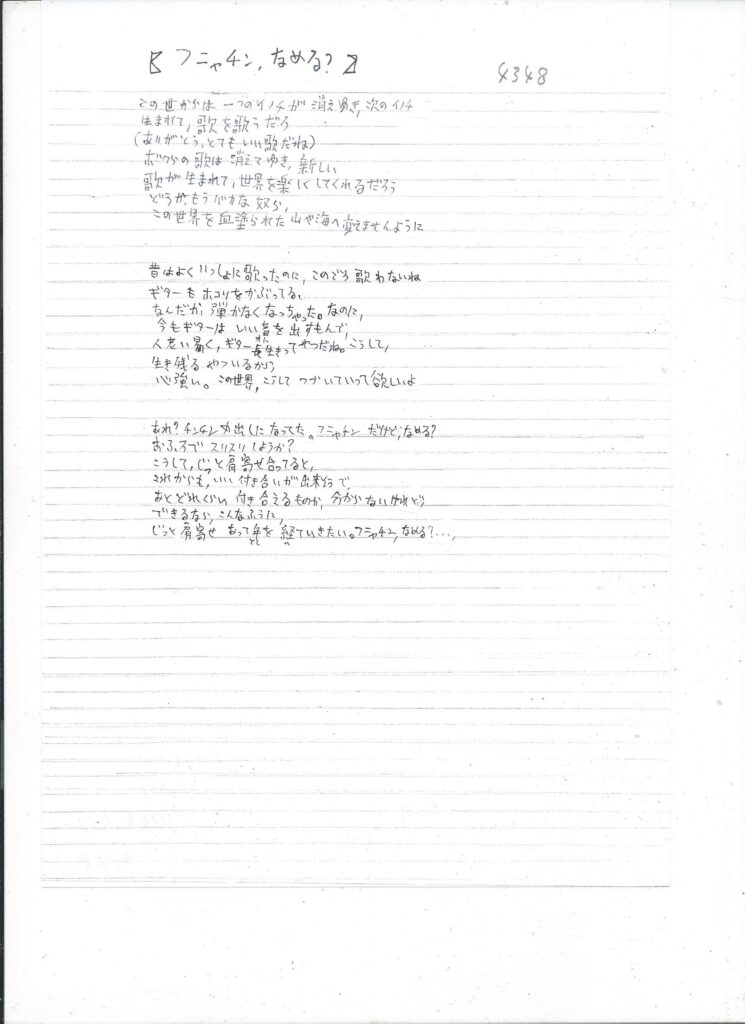 【フニャチン,なめる?】
4348
この世からは一つのイノチが消えゆき,次のイノチ
生まれて,歌を歌うだろ
(ありがとう,とてもいい歌だね)
ボクらの歌は消えてゆき,新しい
歌が生まれて,世界を楽しくしてくれるだろう
どうか,もうバカな奴ら,
この世界を血塗られた山や海へ変えませんように
昔はよくいっしょに歌ったのに,このごろ歌わないね
ギターもホコリをかぶってる、
なんだか,弾かなくなっちゃった。なのに,
今もギターはいい音を出すもんで,
人老い易く,ギター長生きってやつだね。こうして,
生き残るやついるから
心強い。この世界,こうしてつづいていって欲しいよ
あれ?チンチン丸出しになってた。フニャチンだけど,なめる?
おふろでスリスリしようか?
こうして,じっと肩寄せ合ってると,
これからも,いい付き合いが出来そうで,
あとどれくらい付き合えるものか,分からないけれど
できるなら,こんなふうに,
じっと肩寄せあって年を経ていきたい。フニャチン,なめる?...,